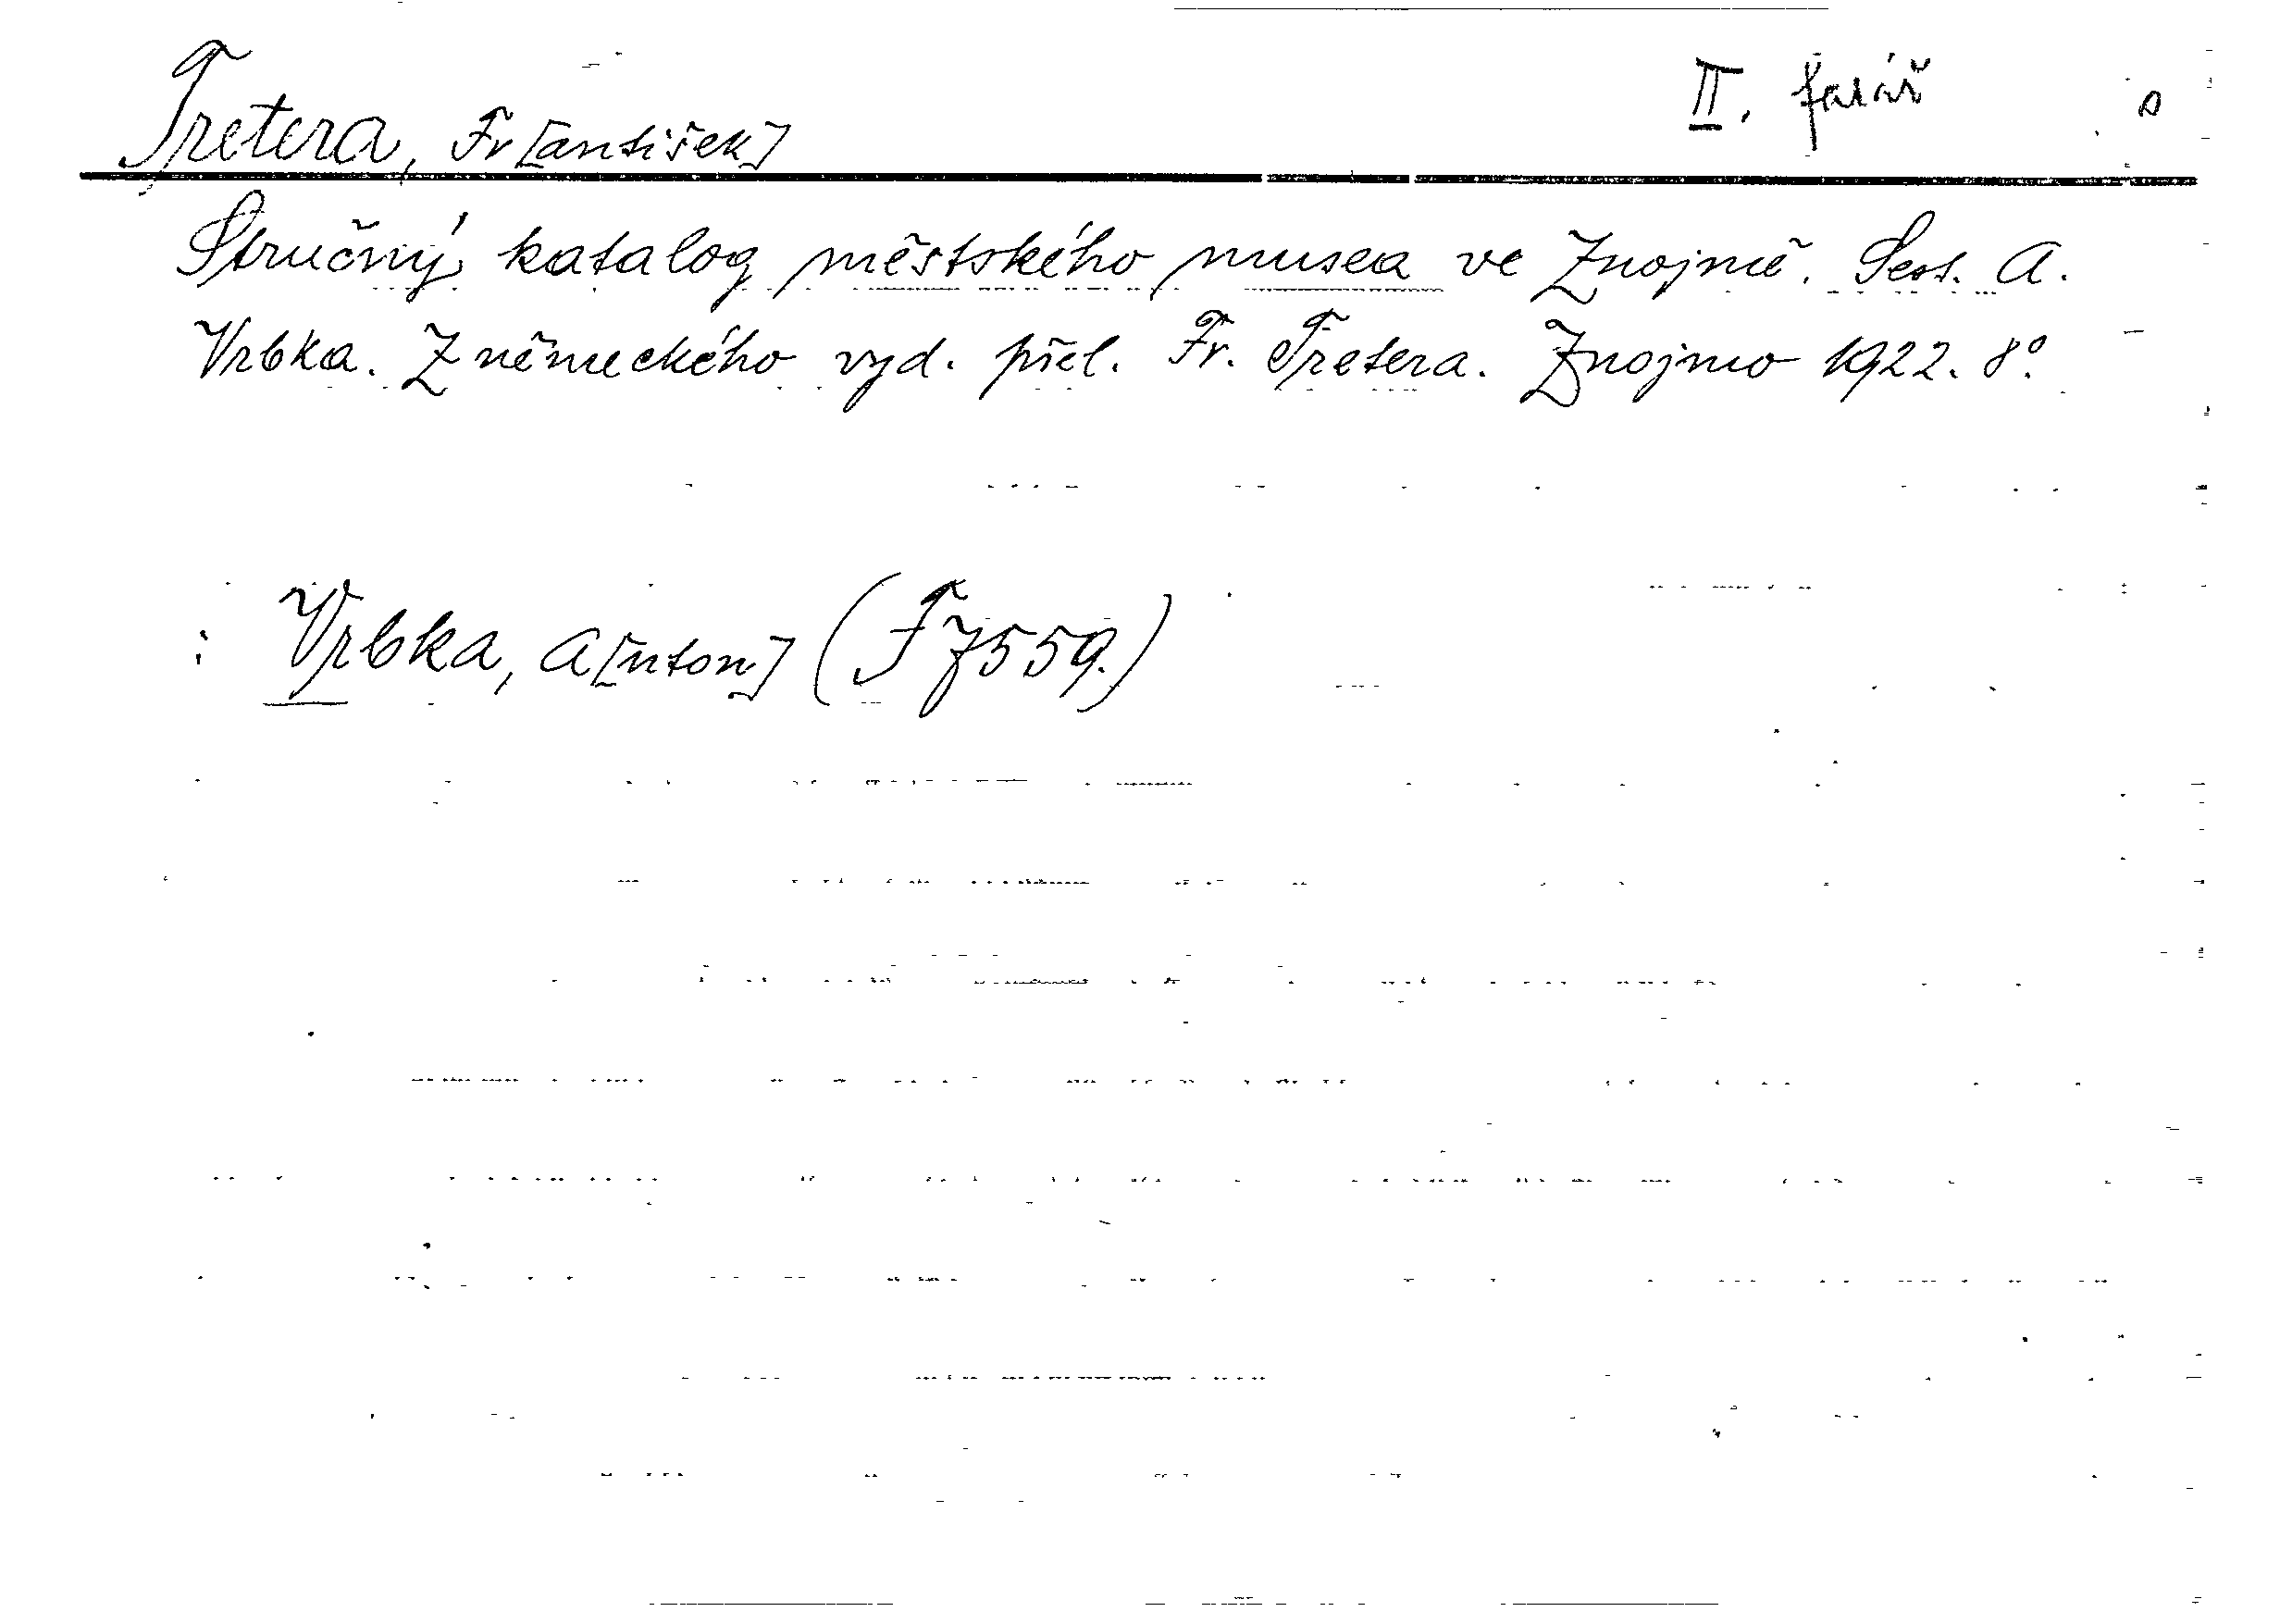 Tretera, Fr[antišek]
II. farář
Stručný katalog městského musea ve Znojmě. Sest. A.
Vrbka. Z německého vyd. přel. Fr. Tretera. Znojmo 1922. 8°.
: Vrbka, A[nton] (F 7559.)